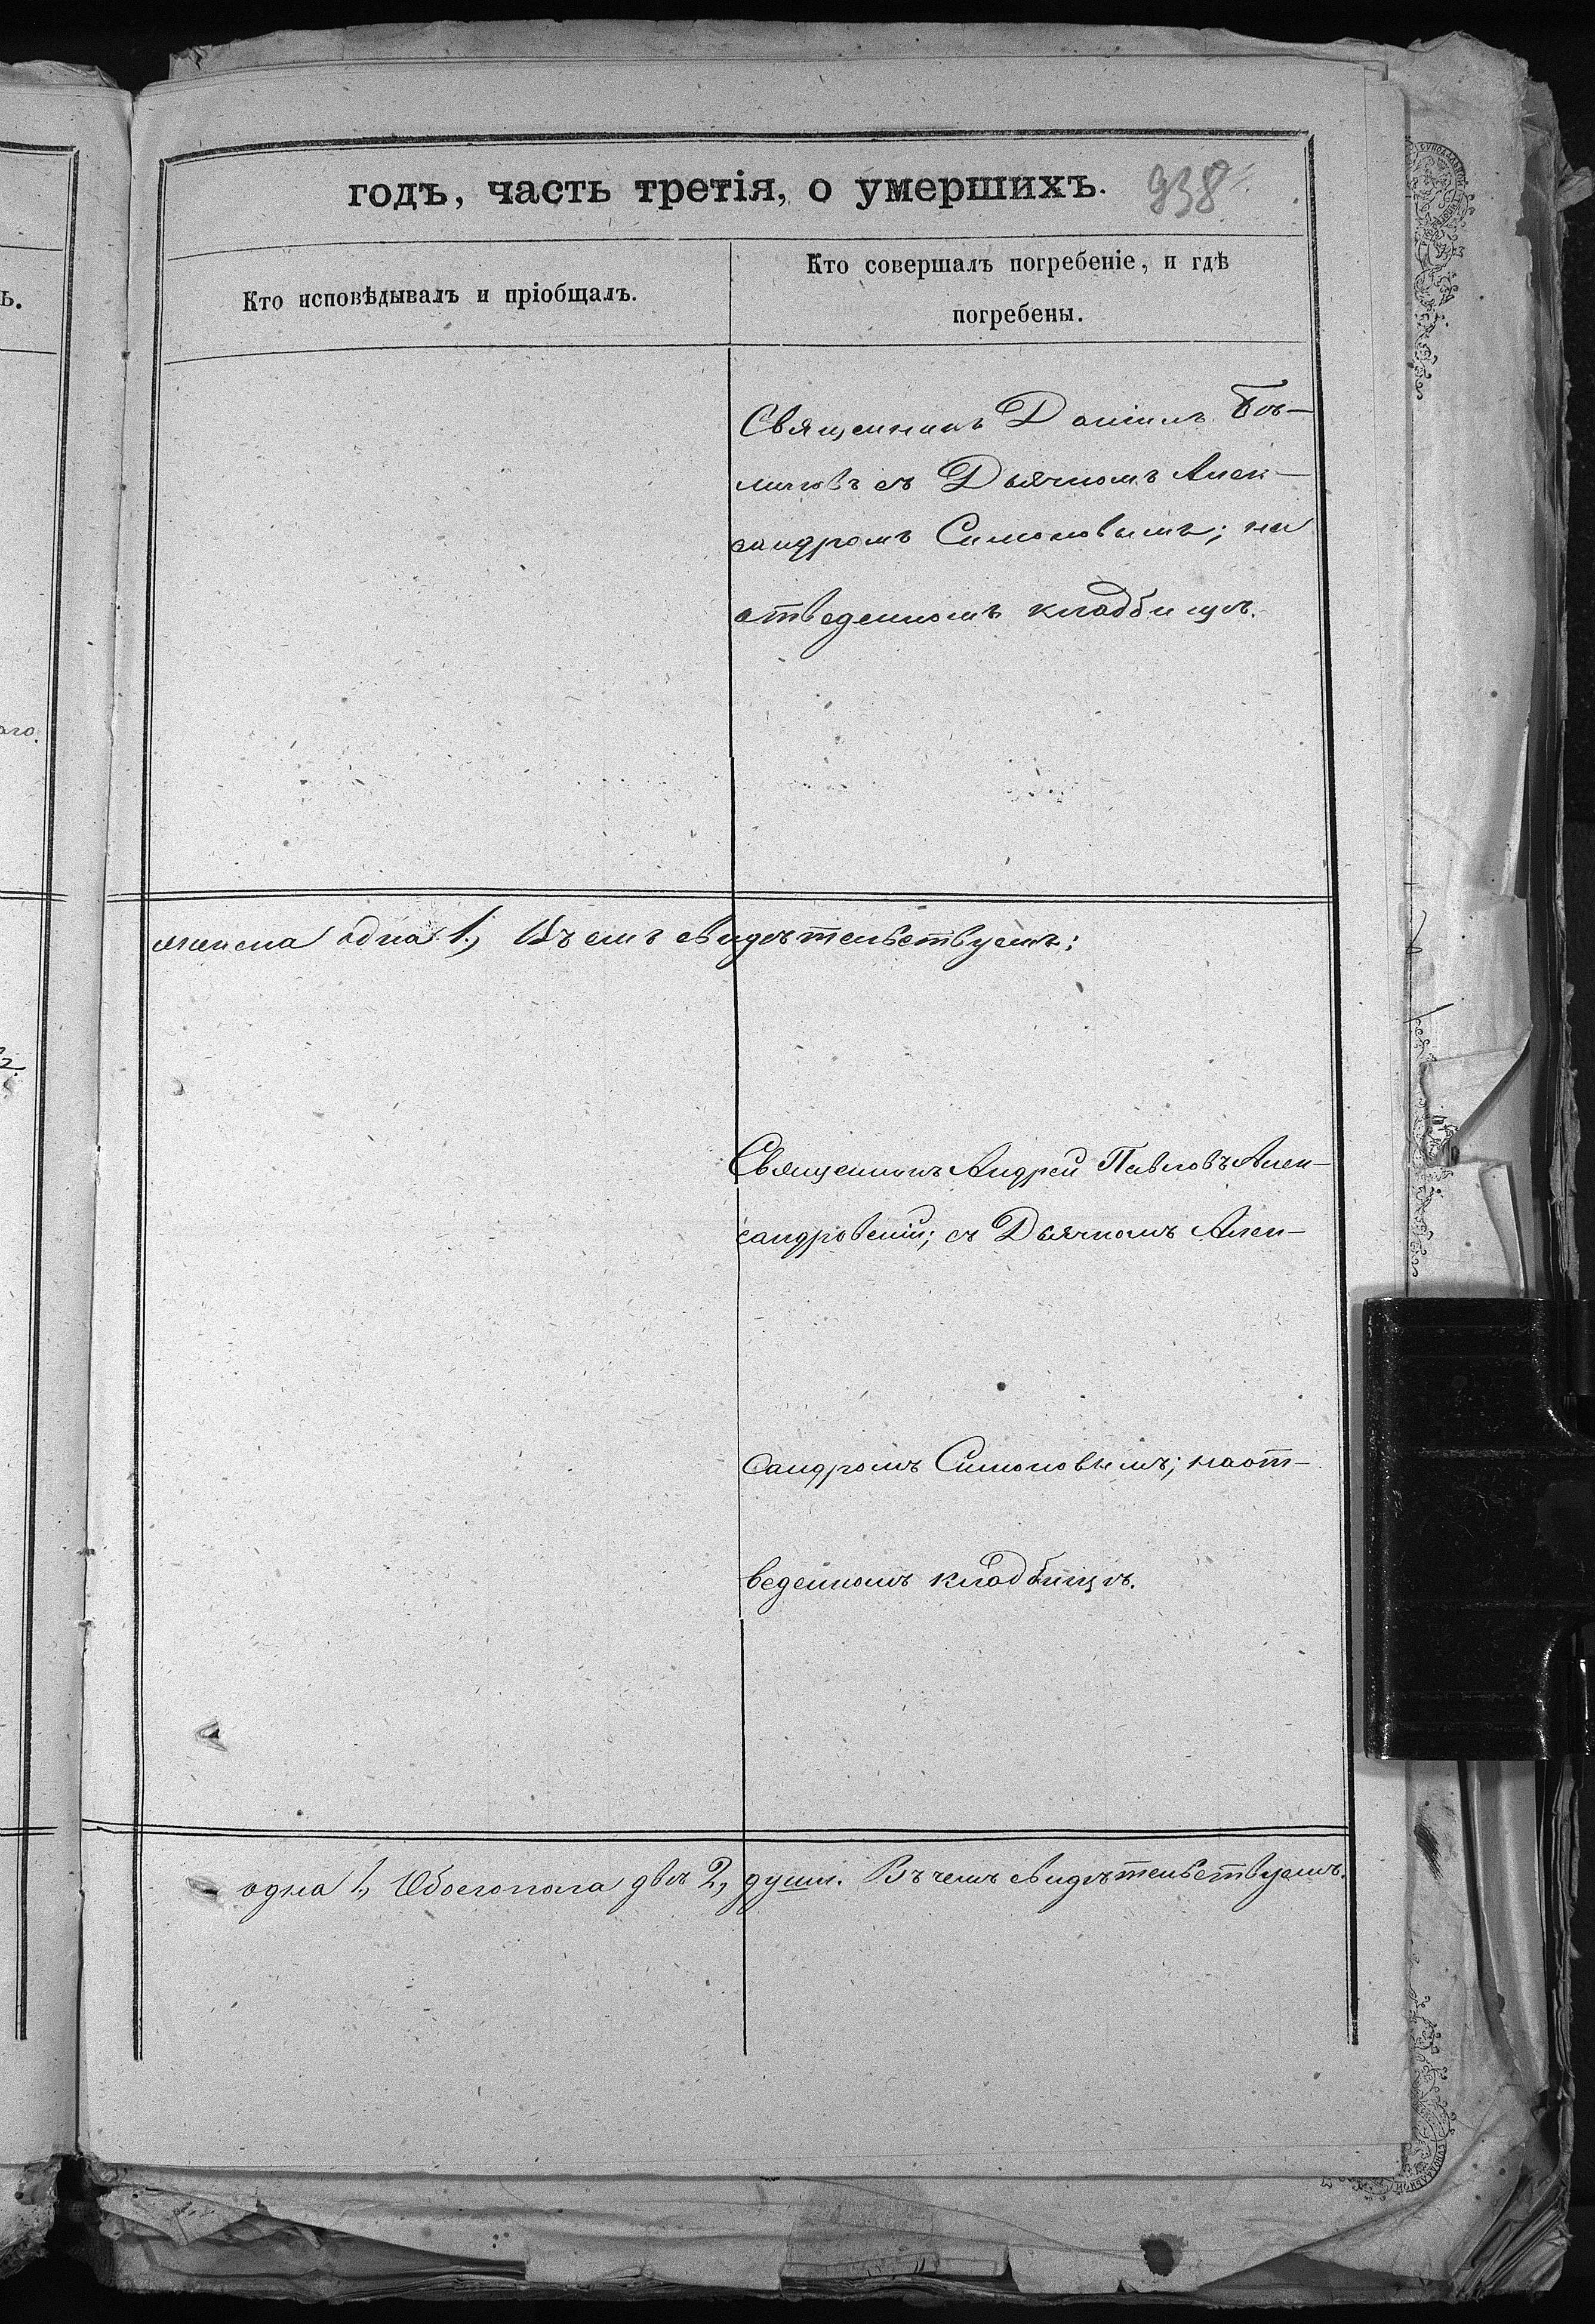 годъ, часть третія, о умершихъ. 938
Кто исповѣдывалъ и пріобщалъ.
Кто совершалъ погребеніе, и гдѣ
погребены.
Священникъ Даніилъ Бѣ-
ликовъ съ Дьячкомъ Алек-
сандромъ Симоновымъ; на
отведенномъ кладбищѣ.
одна 1, Въ чемъ свидѣтельствуемъ:
Священникъ Андрей Павловъ Алек-
сандровскій; съ Дьячкомъ Алек-
сандромъ Симоновымъ; на от-
веденномъ кладбищѣ.
одна 1, Обоего пола двѣ 2, души. Въ чемъ свидѣтельствуемъ.